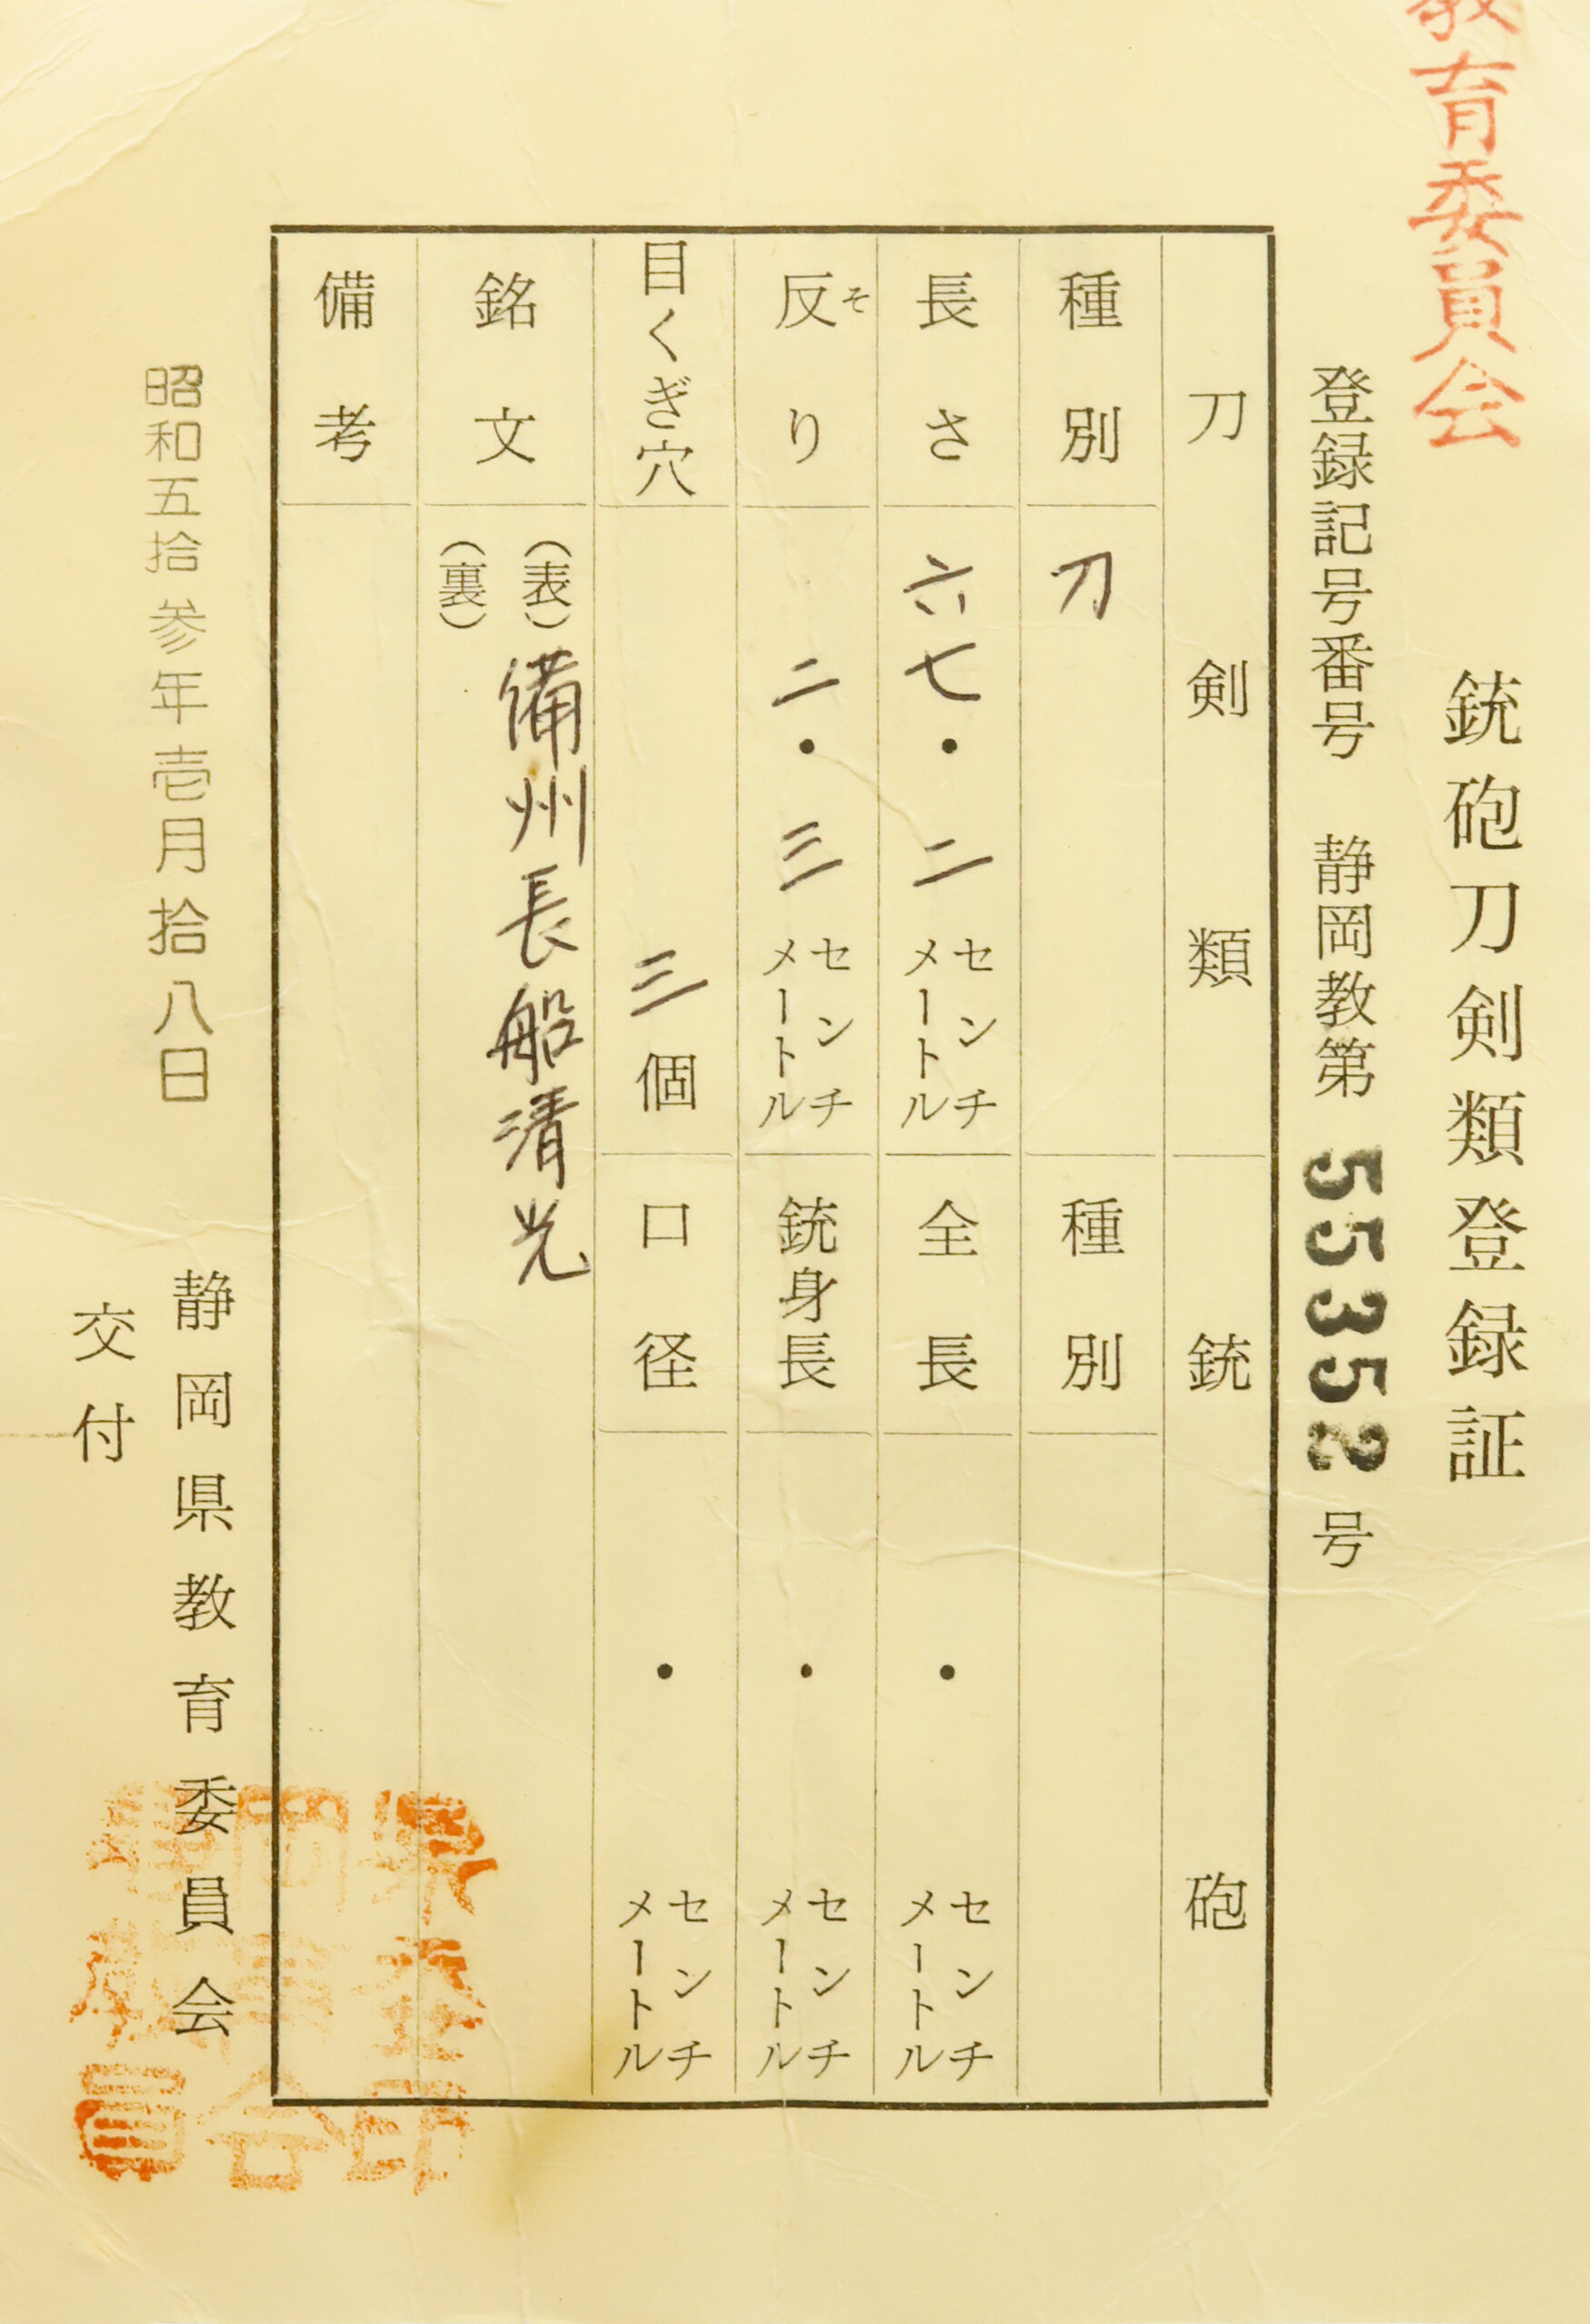 教育委員会
銃砲刀剣類登録証
登録記号番号 静岡教第 55352 号
刀剣類 銃砲
種別 刀 種別
長さ 六七・二 センチメートル 全長 ・ センチメートル
反り そ 二・三 センチメートル 銃身長 ・ センチメートル
目くぎ穴 三 個 口径 ・ センチメートル
銘文 (表) 備州長船清光
(裏)
備考
昭和五拾参年壱月拾八日
静岡県教育委員会
交付